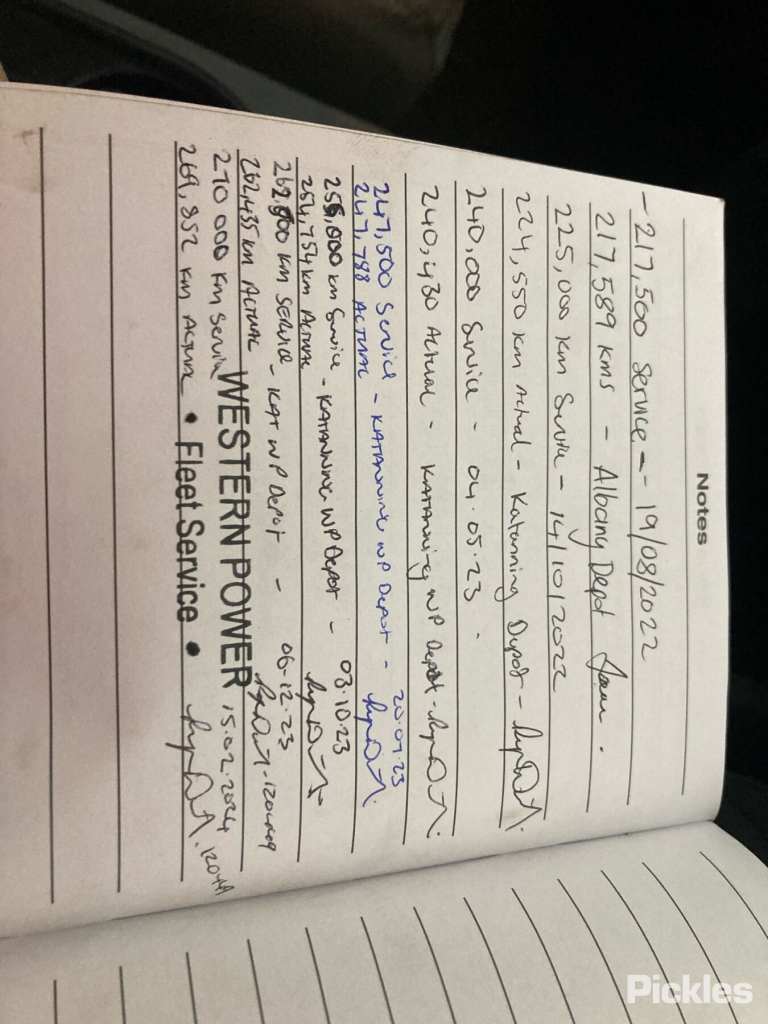 Notes
- 217,500 Service - - 19/08/2022
217,589 kms - Albany Depot
225,000 km Service - 14/10/2022
224,550 km Actual - Katanning Depot -
240,000 Service - 04.05.23 -
240,430 Actual - Katanning WP Depot -
247,500 Service - KATANNING WP DEPOT - 20.07.23
247,798 ACTUAL
255,000 km Service - KATANNING WP DEPOT - 03.10.23
254,754 km ACTUAL
262,500 KM SERVICE - KAT WP DEPOT - 06.12.23
262,435 KM ACTUAL
270 000 KM Service 15.02.2024
WESTERN POWER
269,852 KM ACTUAL
• Fleet Service •
Pickles